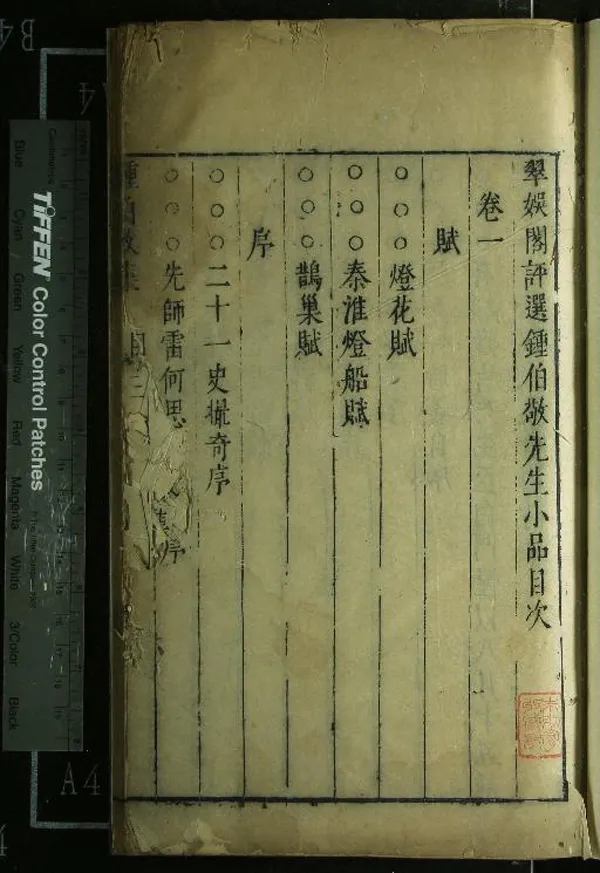 翠娛閣評選鍾伯敬先生小品目次
卷一
賦
○○○燈花賦
○○○秦淮燈船賦
○○○鵲巢賦
序
○○○二十一史撮奇序
○○○先師雷何思
序
鍾伯敬集
目
TIFFEN Color Control Patches
Blue
Cyan
Green
Yellow
Red
Magenta
White
3/Color
Black
B4
A4
A4